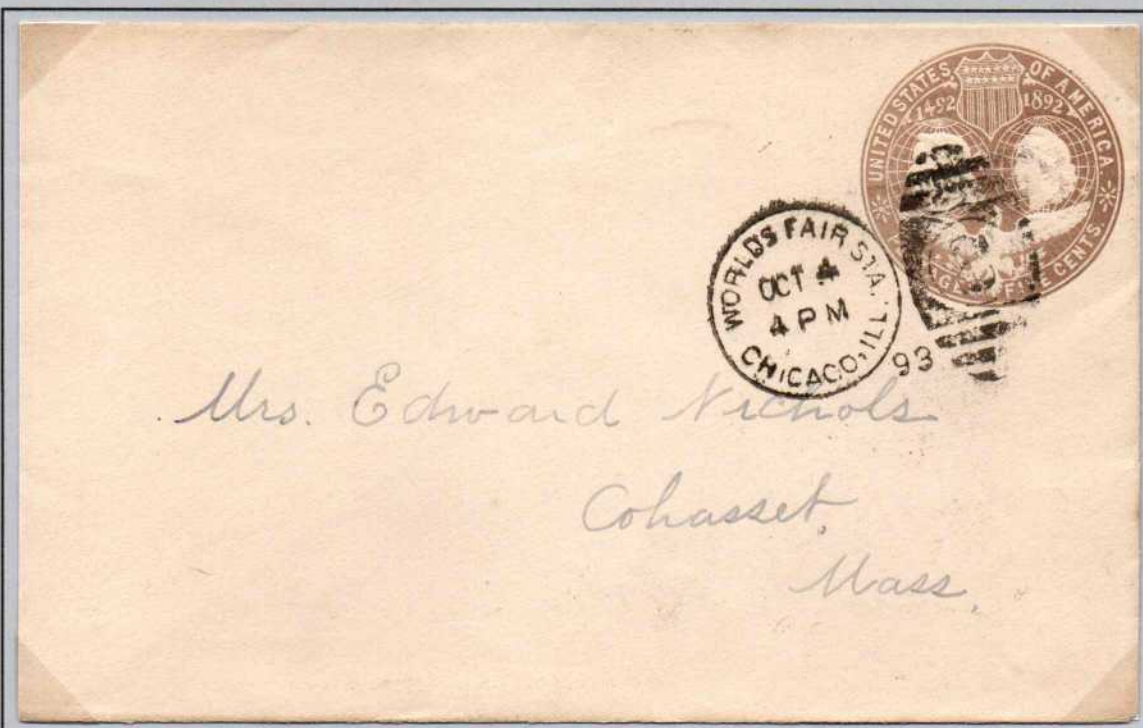 UNITED STATES OF AMERICA.
1492 1892
FIVE CENTS.
WORLD'S FAIR STA.
OCT 4
4 PM
CHICAGO, ILL.
93
Mrs. Edward Nichols
Cohasset,
Mass.